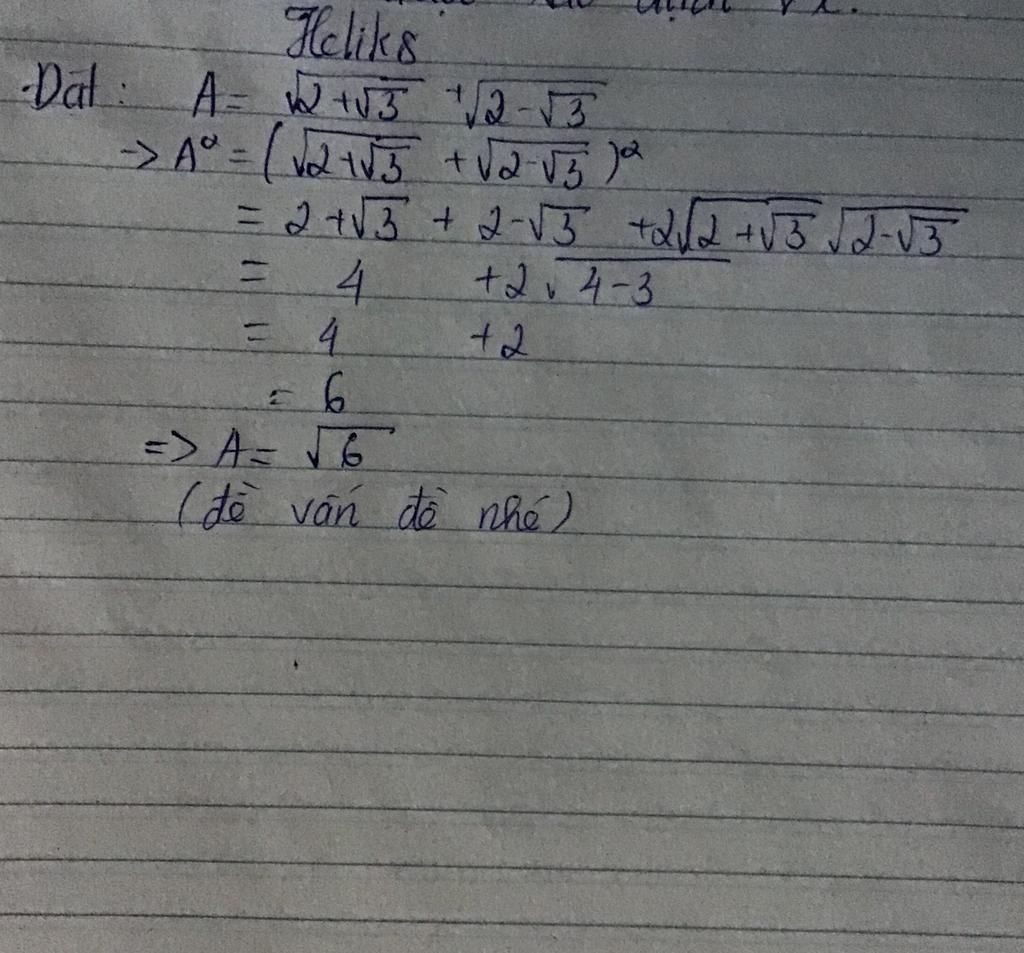 Heliks
Đặt: A = √2+√3 + √2-√3
-> A² = (√2+√3 + √2-√3)²
= 2+√3 + 2-√3 +2√2+√3 √2-√3
= 4 +2. √4-3
= 4 +2
= 6
=> A = √6
(đề vấn đề nhé)